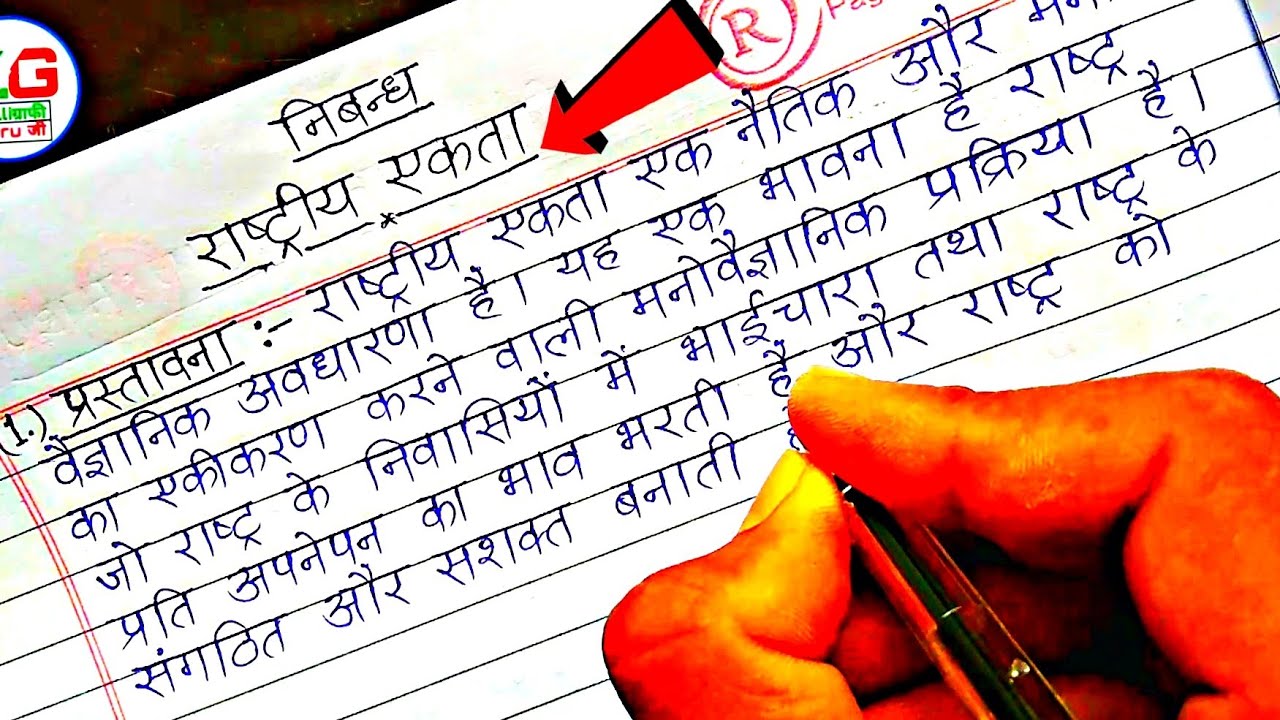 निबन्ध
राष्ट्रीय एकता
(1.) प्रस्तावना :- राष्ट्रीय एकता एक नैतिक और
वैज्ञानिक अवधारणा है। यह एक भावना है राष्ट्र
का एकीकरण करने वाली मनोवैज्ञानिक प्रक्रिया है।
जो राष्ट्र के निवासियों में भाईचारा तथा राष्ट्र के
प्रति अपनेपन का भाव भरती है और राष्ट्र को
संगठित और सशक्त बनाती
R
G
ru जी